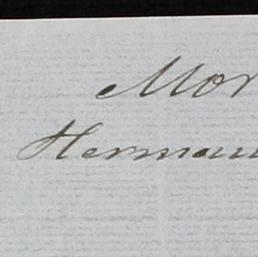 Mor
Herman